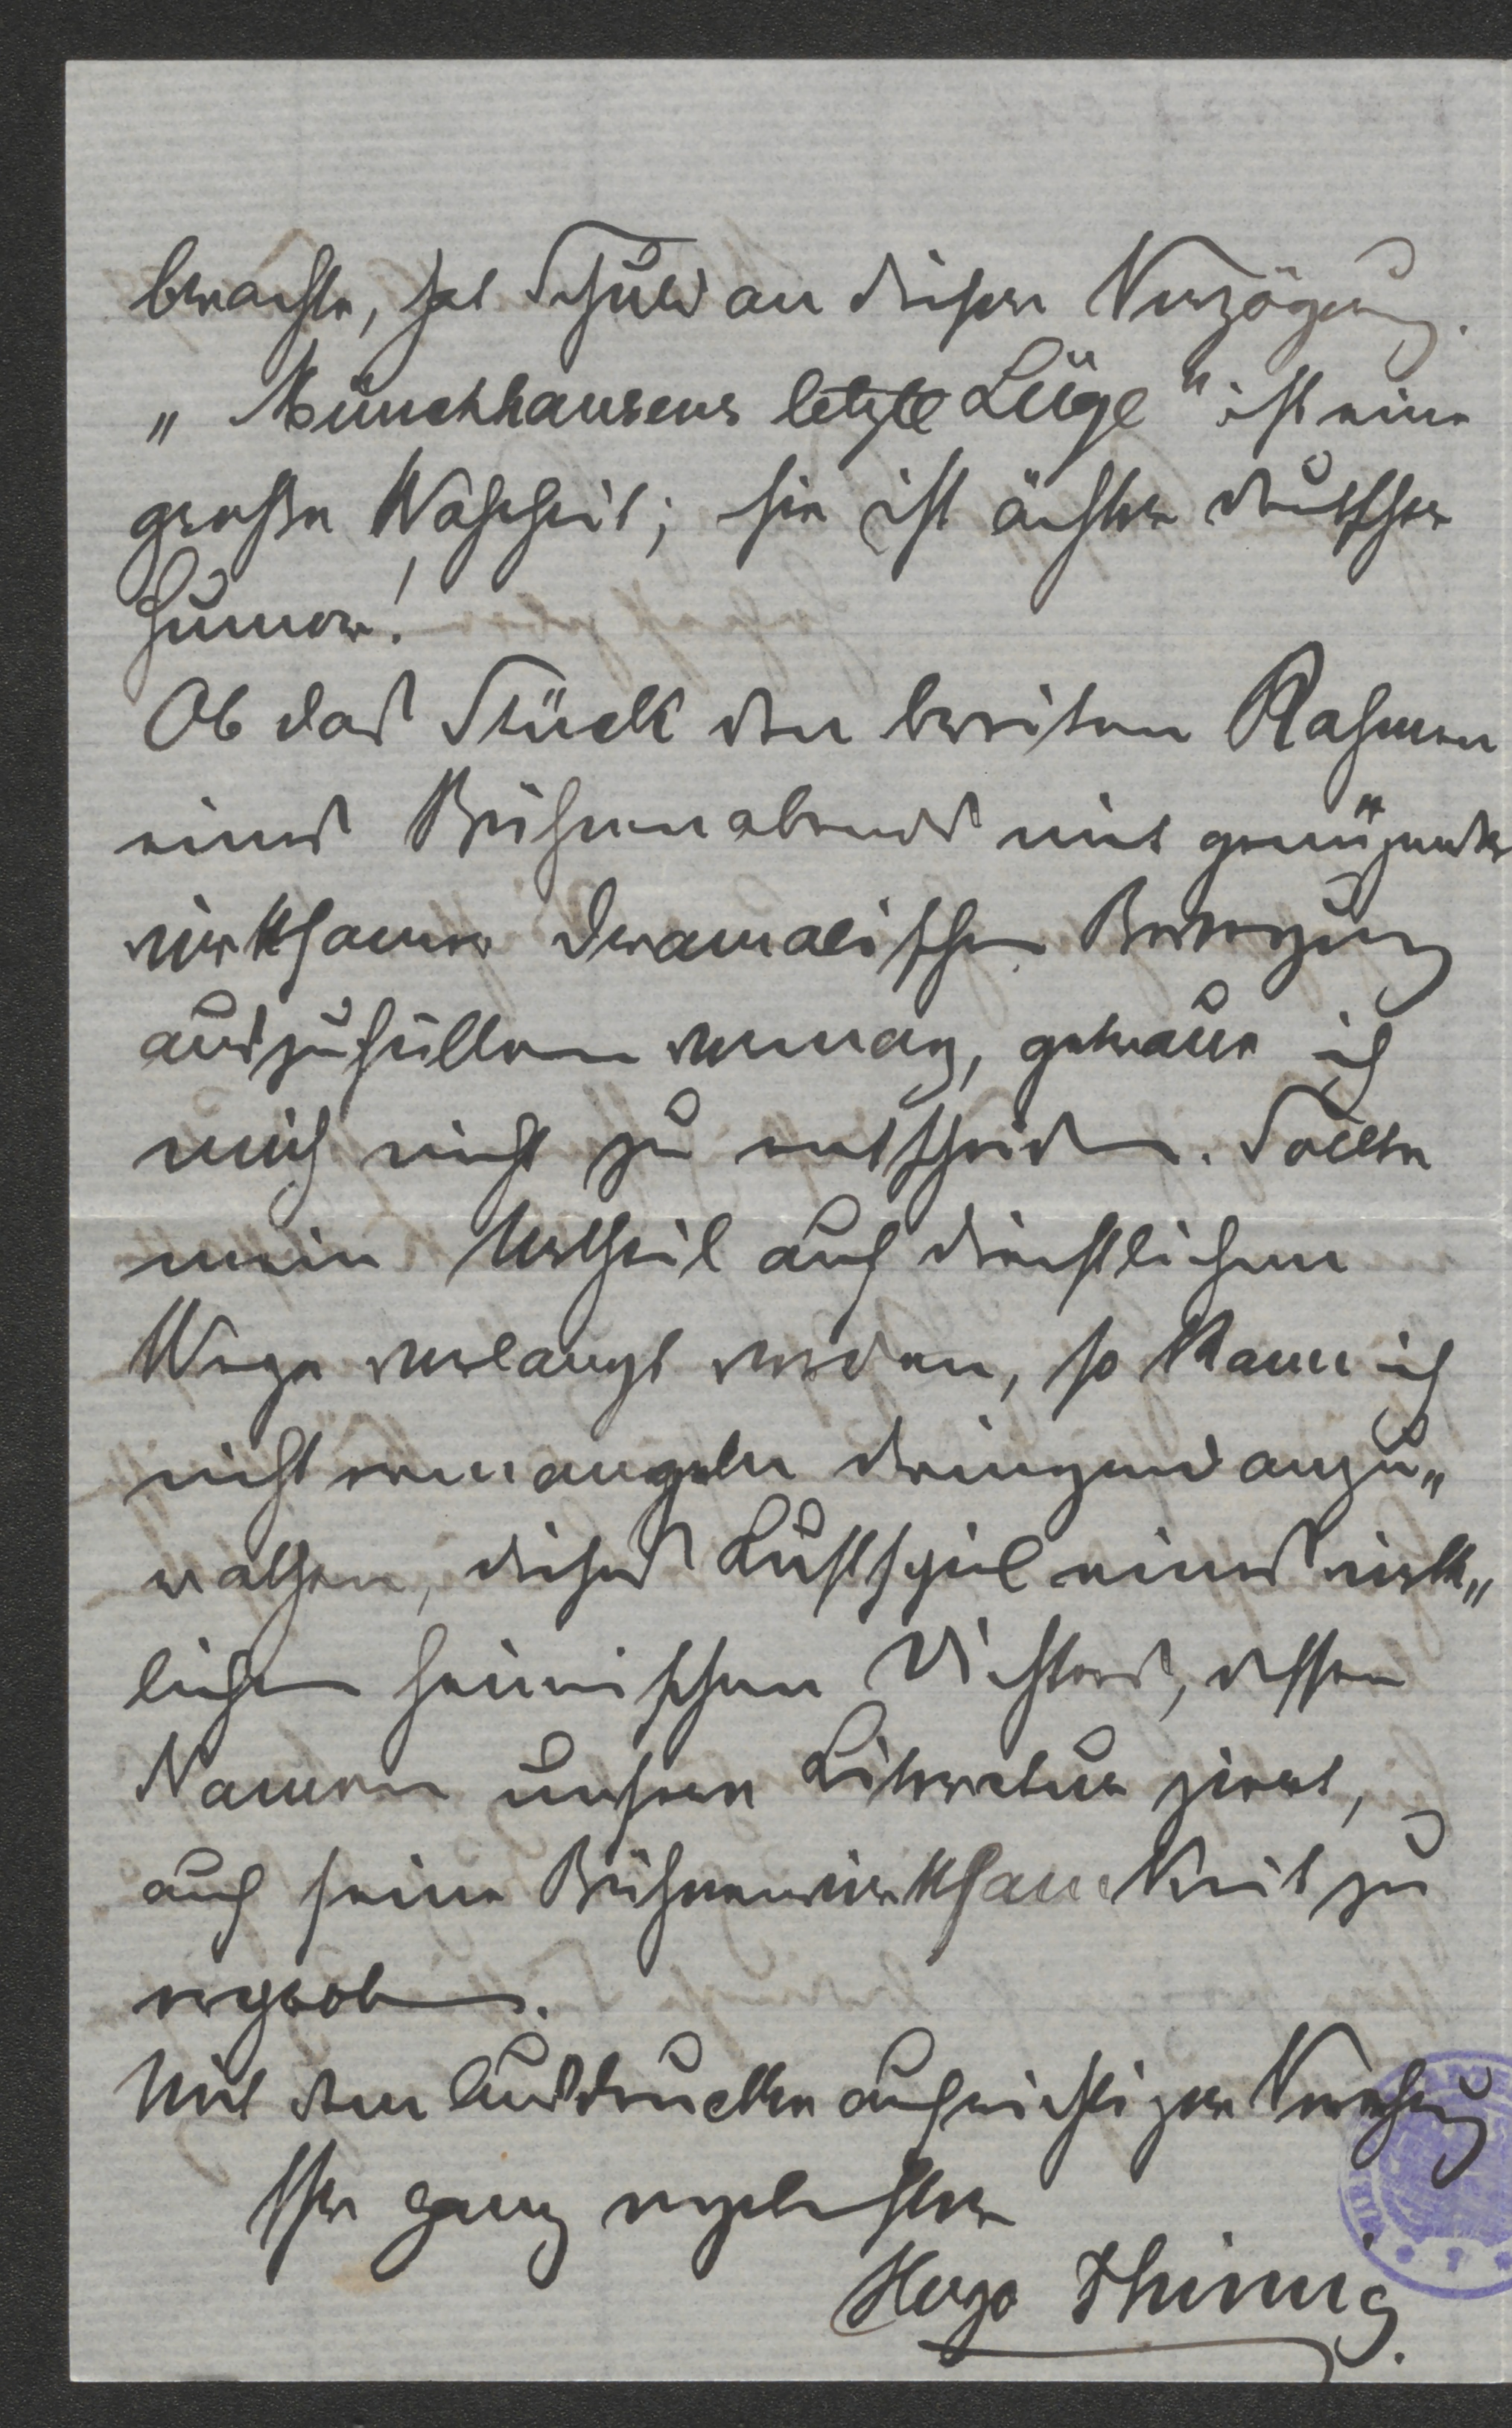 brachte, hat Schuld an dieser Verzögerung.
„Münchhausens letzte Lüge" ist eine
große Wahrheit; sie ist ächter deutscher
Humor!
Ob das Stück den breiten Rahmen
eines Bühnenabends mit genügender
wirksamer dramatischer Bewegung
auszufüllen vermag, getraue ich
mich nicht zu entscheiden. Sollte
mein Urtheil auf dienstlichem
Wege verlangt werden, so kann ich
nicht ermangeln dringend anzu„
rathen, dieses Lustspiel eines wirk„
lichen heimischen Dichters, dessen
Namen unsere Literatur ziert,
auf seine Bühnenwirksamkeit zu
erproben.
Mit dem Ausdrucke aufrichtiger Verehrung
Ihr ganz ergebenster
Hugo Thimig.